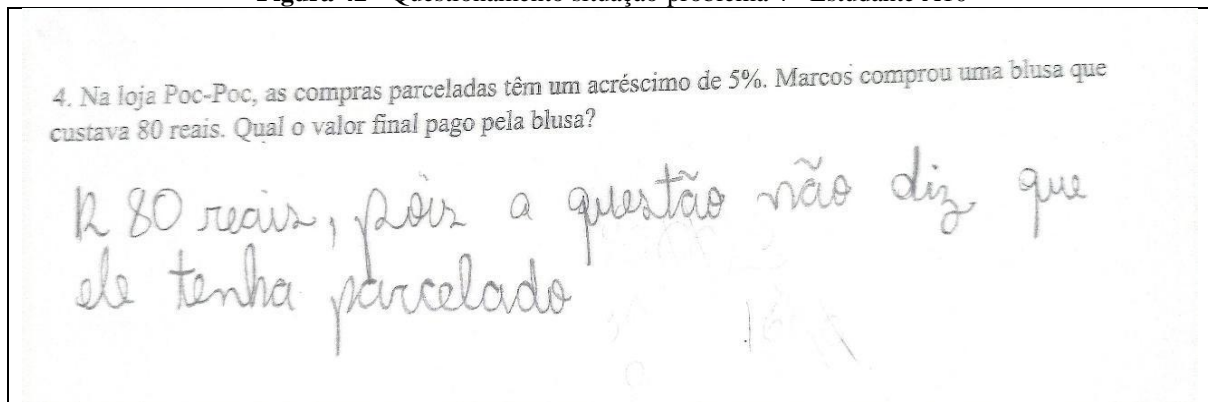 4. Na loja Poc-Poc, as compras parceladas têm um acréscimo de 5%. Marcos comprou uma blusa que
custava 80 reais. Qual o valor final pago pela blusa?
R 80 reais, pois a questão não diz que
ele tenha parcelado